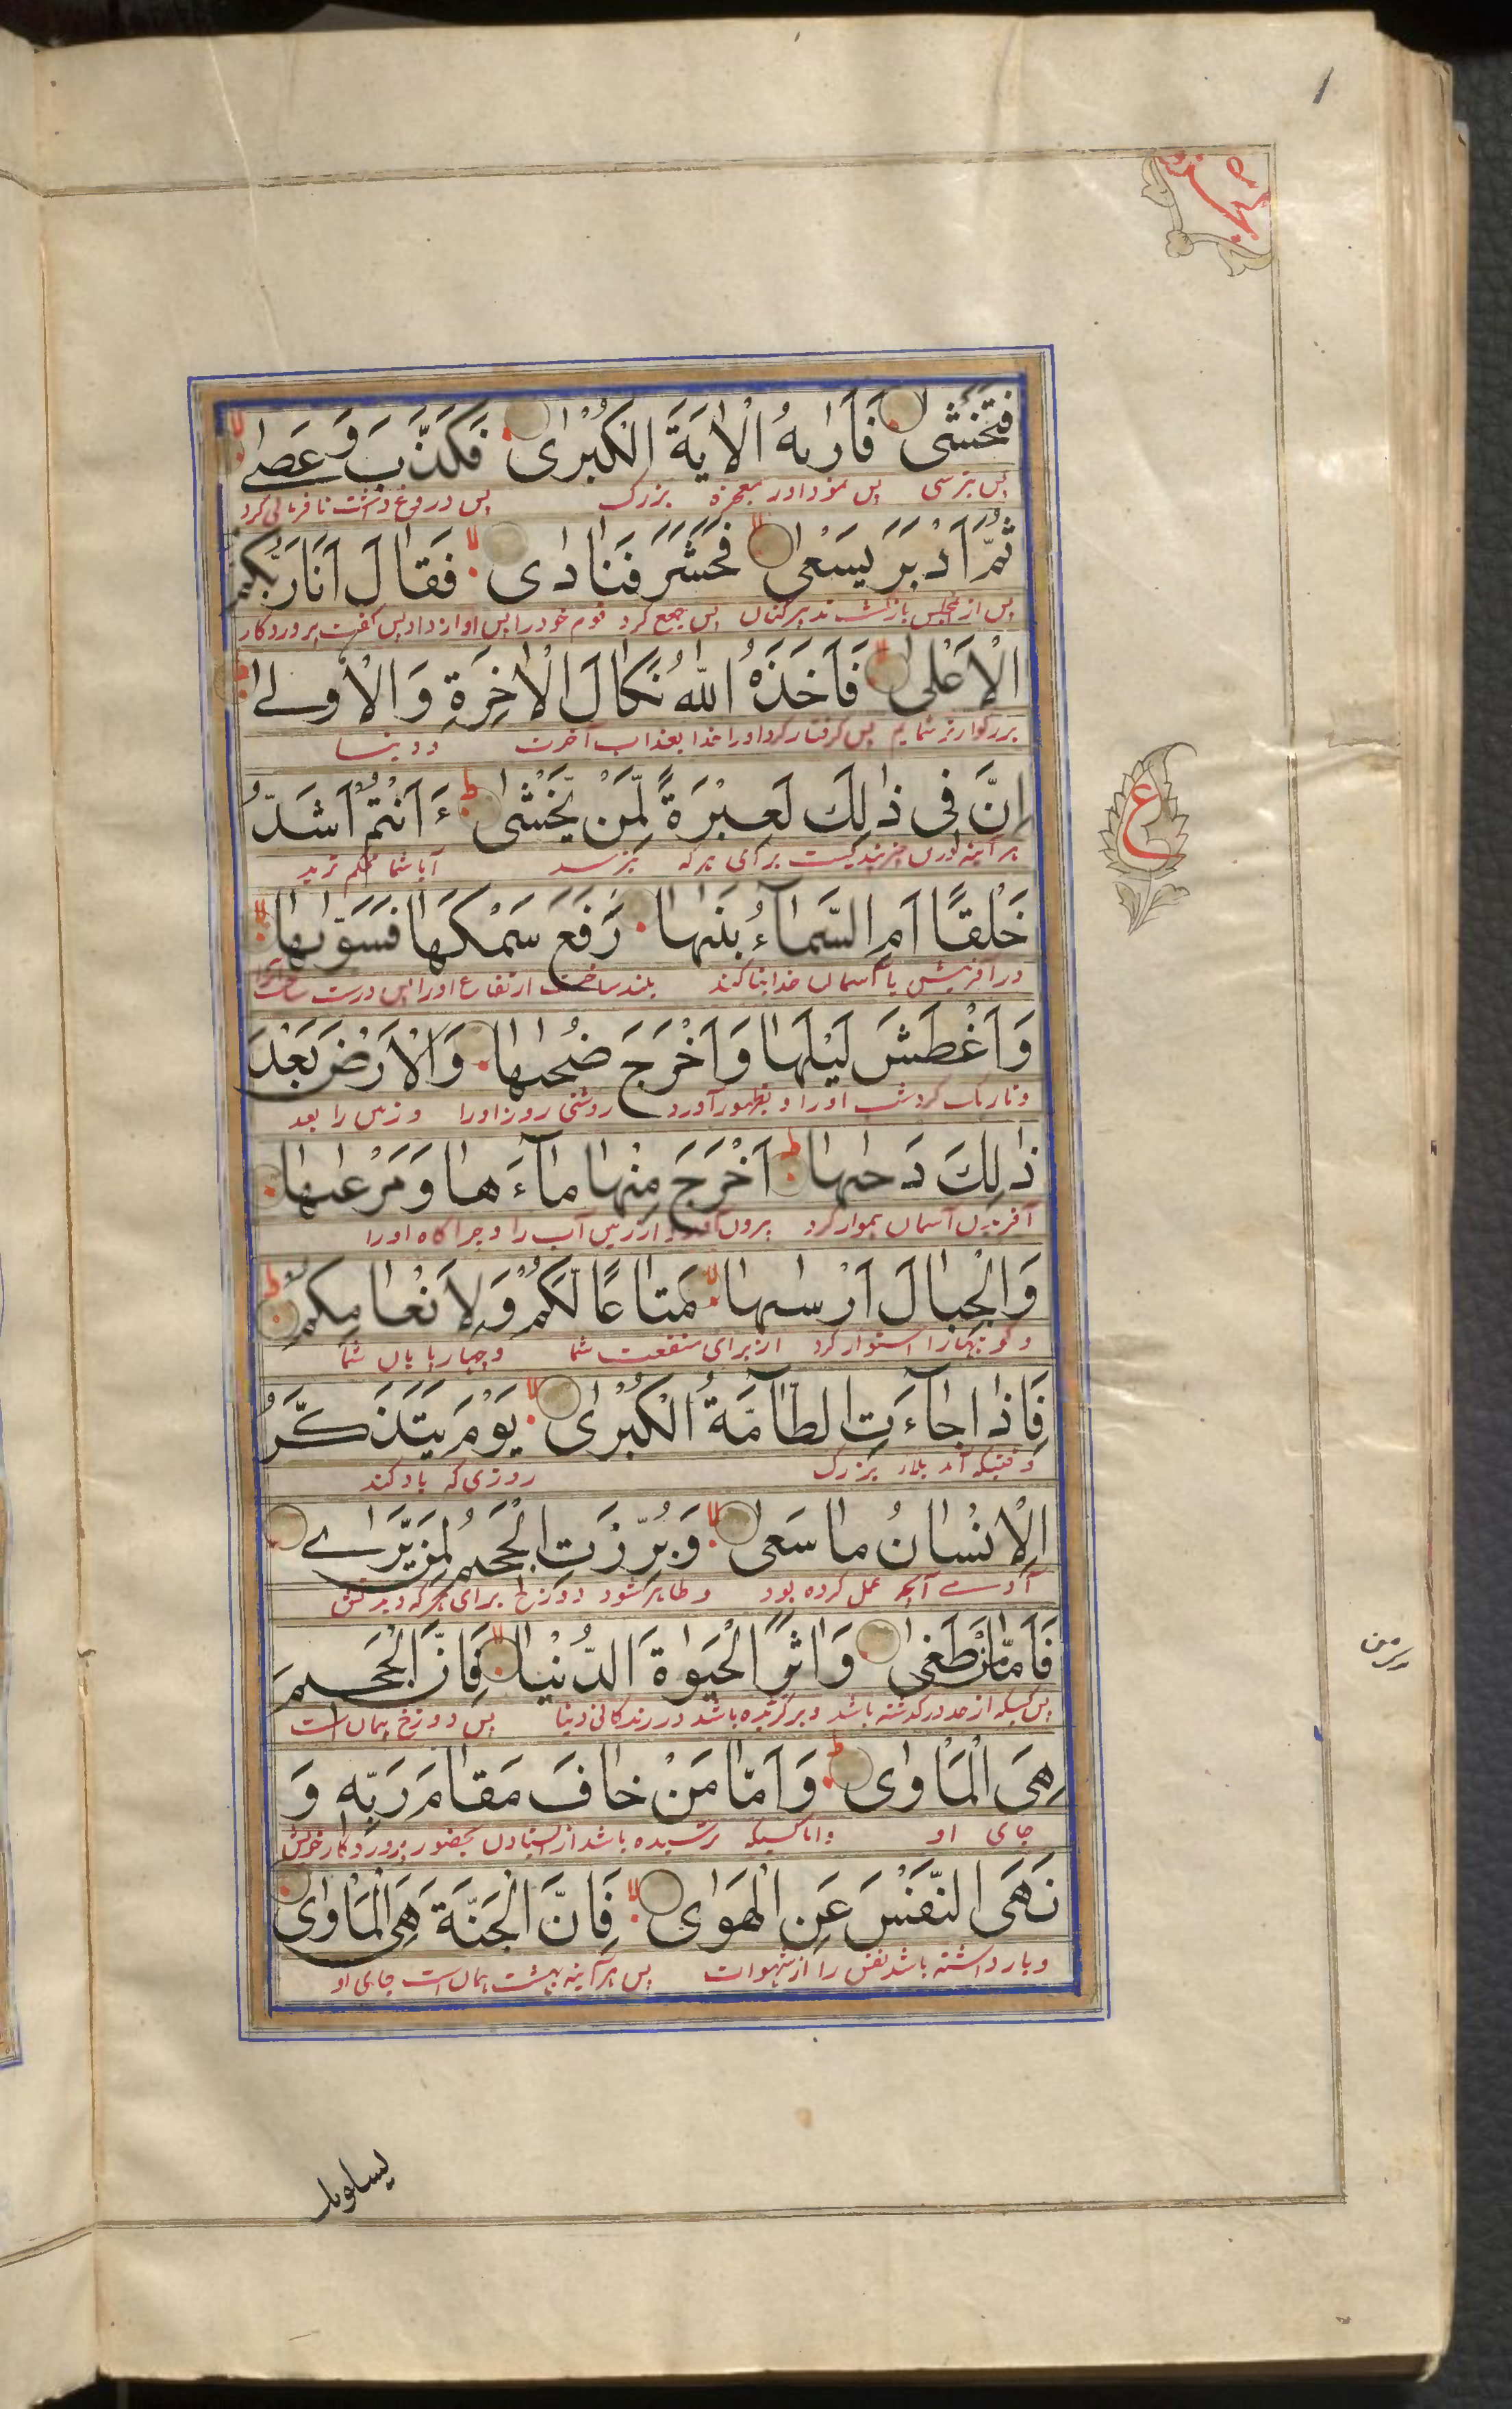 فَتَخْشٰى فَاَرٰىهُ الْاٰيَةَ الْكُبْرٰى فَكَذَّبَ وَعَصٰى
پس بترسی پس نمود اورا معجزه بزرگ پس دروغ داشت نافرمانی کرد
ثُمَّ اَدْبَرَ يَسْعٰى فَحَشَرَ فَنَادٰى فَقَالَ اَنَا رَبُّكُمُ
پس از مجلس بازگشت تدبیر کنان پس جمع کرد قوم خود را پس آواز داد پس گفت پروردگار
الْاَعْلٰى فَاَخَذَهُ اللّٰهُ نَكَالَ الْاٰخِرَةِ وَالْاُوْلٰى
بزرگوارتر شمایم پس گرفتار کرد اورا خدا بعذاب آخرت و دنیا
اِنَّ فِى ذٰلِكَ لَعِبْرَةً لِّمَنْ يَّخْشٰى ءَاَنْتُمْ اَشَدُّ
هر آینه درین پندیست برای هر که بترسد آیا شما محکم ترید
خَلْقًا اَمِ السَّمَآءُ بَنٰىهَا رَفَعَ سَمْكَهَا فَسَوّٰىهَا
در آفرینش یا آسمان خدا بنا کند بلند ساخت ارتفاع اورا پس درست ساخت
وَاَغْطَشَ لَيْلَهَا وَاَخْرَجَ ضُحٰىهَا وَالْاَرْضَ بَعْدَ
و تاریک کرد شب اورا و بظهور آورد روشنی روز اورا و زمین را بعد
ذٰلِكَ دَحٰىهَا اَخْرَجَ مِنْهَا مَآءَهَا وَمَرْعٰىهَا
آفریدن آسمان هموار کرد بیرون آورد از زمین آب را و چراگاه اورا
وَالْجِبَالَ اَرْسٰىهَا مَتَاعًا لَّكُمْ وَلِاَنْعَامِكُمْ
و کوهها را استوار کرد از برای منفعت شما و چهارپایان شما
فَاِذَا جَآءَتِ الطَّآمَّةُ الْكُبْرٰى يَوْمَ يَتَذَكَّرُ
وقتیکه آمد بلاء بزرگ روزی که یاد کند
الْاِنْسَانُ مَا سَعٰى وَبُرِّزَتِ الْجَحِيْمُ لِمَنْ يَّرٰى
آدمے آنچه عمل کرده بود و ظاهر شود دوزخ برای هر که
فَاَمَّا مَنْ طَغٰى وَاٰثَرَ الْحَيٰوةَ الدُّنْيَا فَاِنَّ الْجَحِيْمَ
پس کسیکه از حد درگذشته باشد و برگزیده باشد در زندگانی دنیا پس دوزخ همان است
هِىَ الْمَاْوٰى وَاَمَّا مَنْ خَافَ مَقَامَ رَبِّهٖ وَ
جای او و اما کسیکه ترسیده باشد از ایستادن بحضور پروردگار خویش
نَهَى النَّفْسَ عَنِ الْهَوٰى فَاِنَّ الْجَنَّةَ هِىَ الْمَاْوٰى
و بازداشته باشد نفس را از شهوات پس هر آینه بهشت همان است جای او
ع
يسلونك